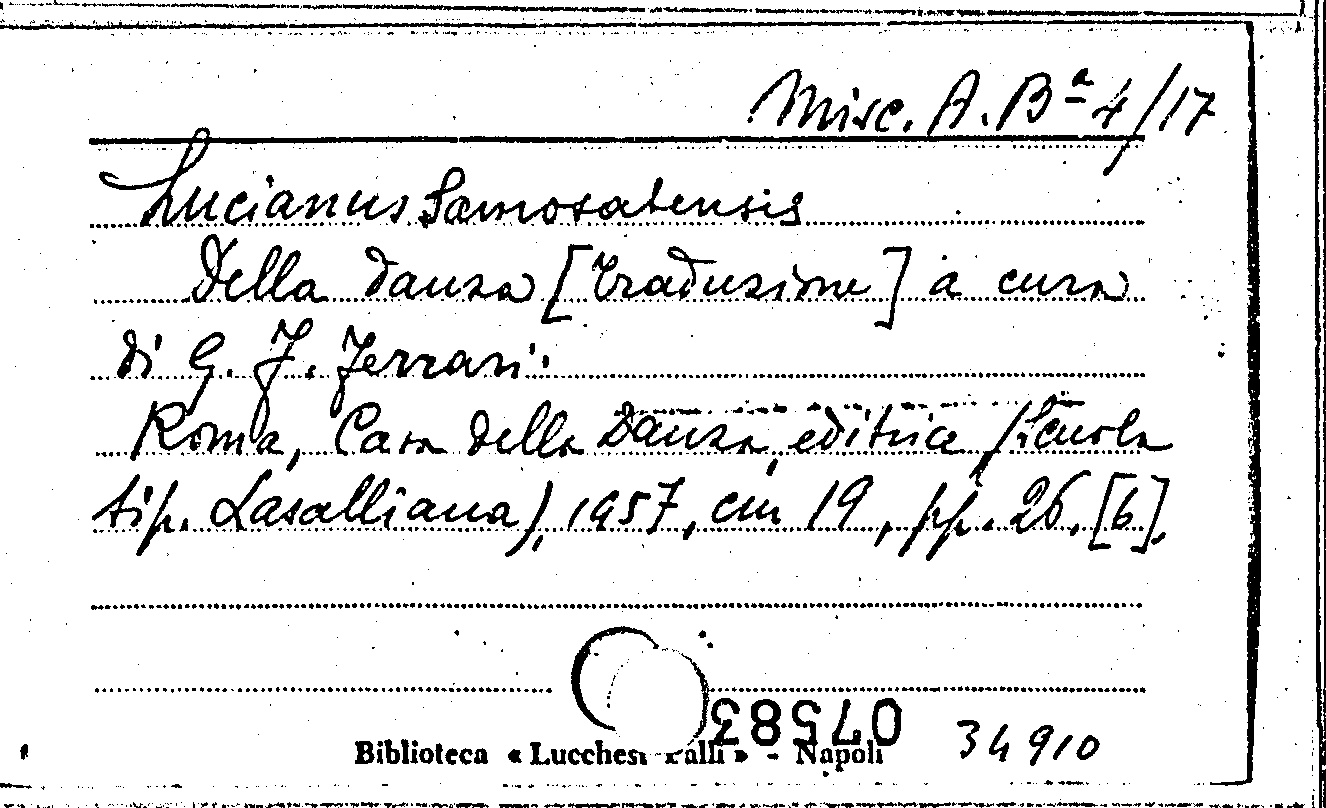 Misc. A. Bª 4/17
Lucianus Samosatensis
Della danza [traduzione] a cura
di G. J. Ferrari.
Roma, Casa della Danza, editrice (Scuola
tip. Lasalliana), 1957, cm 19, pp. 26, [6].
07583
Biblioteca « Lucchesi Palli » - Napoli 34910